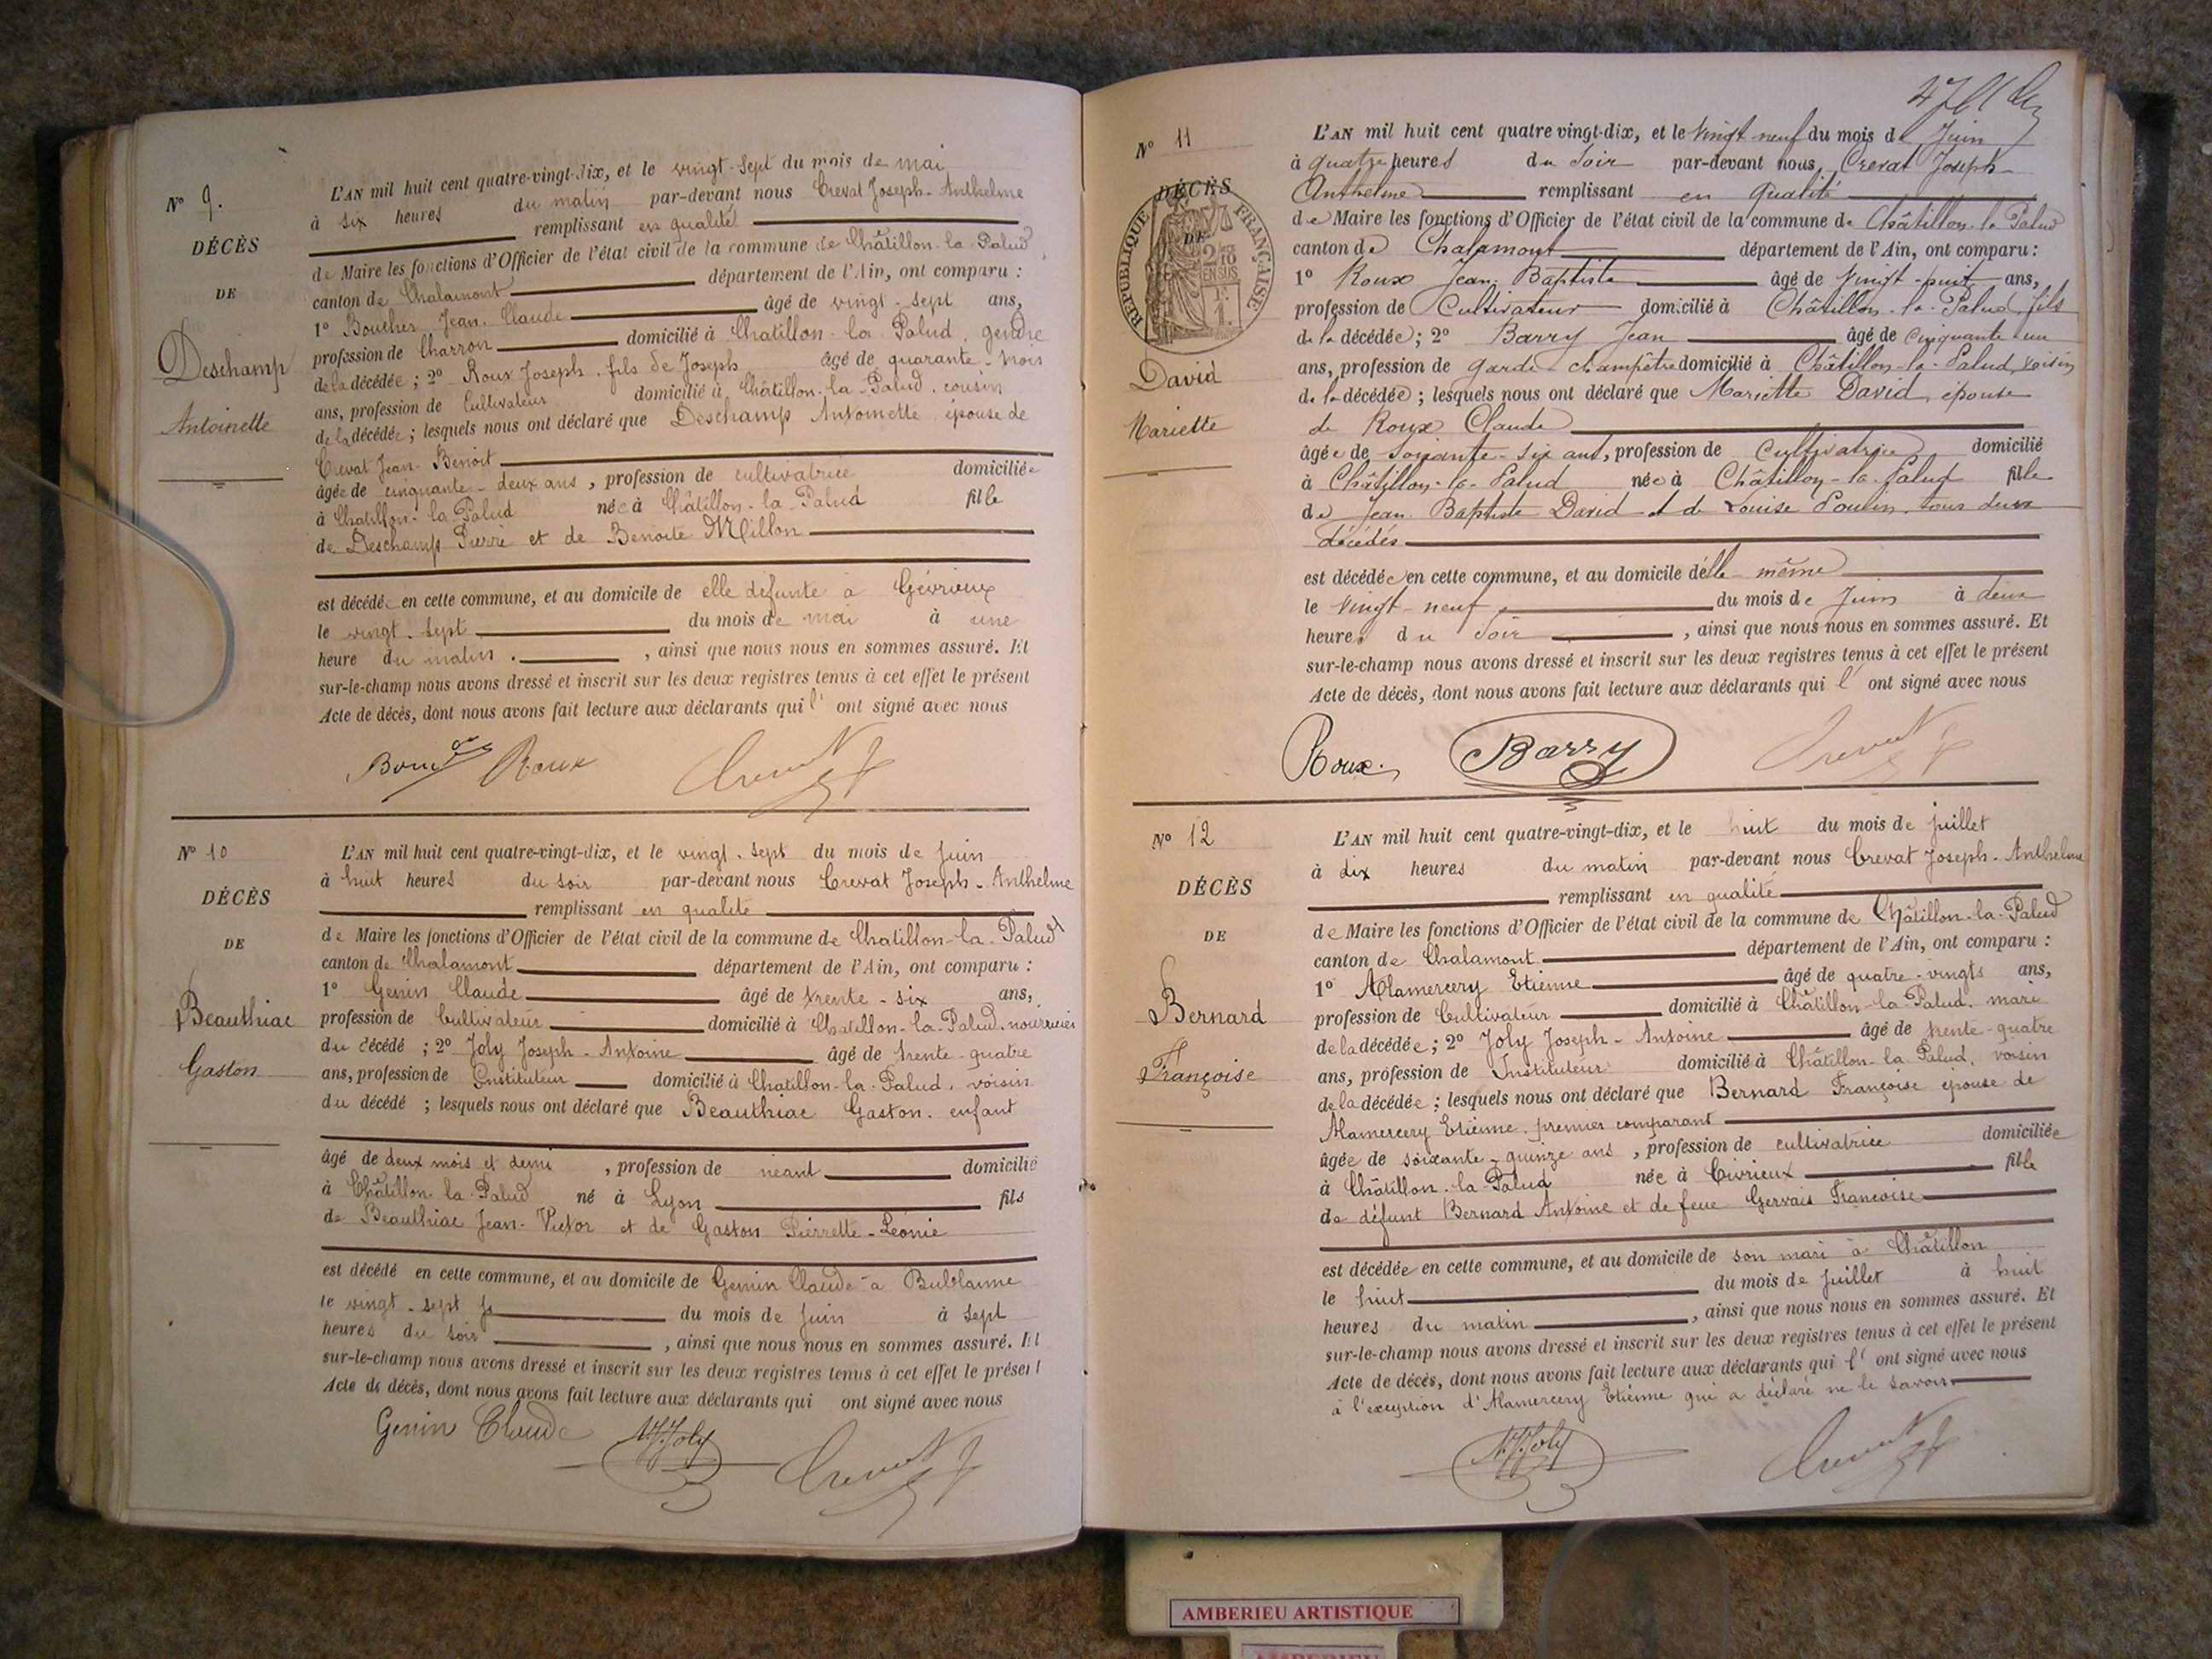 Nº 9.
DÉCÈS
DE
Deschamp
Antoinette
L'AN mil huit cent quatre-vingt-dix, et le vingt-sept du mois de mai
à six heures du matin par-devant nous Crevat Joseph-Anthelme
remplissant en qualité
de Maire les fonctions d'Officier de l'état civil de la commune de Châtillon-la-Palud,
canton de Chalamont département de l'Ain, ont comparu :
1º Boucher Jean-Claude âgé de vingt-sept ans,
profession de Charron domicilié à Chatillon-la-Palud, gendre
de la décédée ; 2º Roux Joseph, fils de Joseph âgé de quarante-trois
ans, profession de Cultivateur domicilié à Châtillon-la-Palud, cousin
de la décédée ; lesquels nous ont déclaré que Deschamp Antoinette, épouse de
Crevat Jean-Benoit
âgée de cinquante-deux ans, profession de cultivatrice domiciliée
à Chatillon-la-Palud née à Châtillon-la-Palud fille
de Deschamp Pierre et de Benoite Millon
est décédée en cette commune, et au domicile de elle défunte à Gévrieux
le vingt-sept du mois de mai à une
heure du matin, ainsi que nous nous en sommes assuré. Et
sur-le-champ nous avons dressé et inscrit sur les deux registres tenus à cet effet le présent
Acte de décès, dont nous avons fait lecture aux déclarants qui l' ont signé avec nous
Roux Crevat
Nº 10
DÉCÈS
DE
Beauthiac
Gaston
L'AN mil huit cent quatre-vingt-dix, et le vingt-sept du mois de juin
à huit heures du soir par-devant nous Crevat Joseph-Anthelme
remplissant en qualité
de Maire les fonctions d'Officier de l'état civil de la commune de Chatillon-la-Palud
canton de Chalamont département de l'Ain, ont comparu :
1º Genin Claude âgé de trente-six ans,
profession de Cultivateur domicilié à Chatillon-la-Palud, nourricier
du décédé ; 2º Joly Joseph-Antoine âgé de trente-quatre
ans, profession de Instituteur domicilié à Chatillon-la-Palud, voisin
du décédé ; lesquels nous ont déclaré que Beauthiac Gaston, enfant
âgé de deux mois et demi, profession de néant domicilié
à Châtillon-la-Palud né à Lyon fils
de Beauthiac Jean-Victor et de Gaston Pierrette-Léonie
est décédé en cette commune, et au domicile de Genin Claude à Bublanne
le vingt-sept du mois de juin à sept
heures du soir, ainsi que nous nous en sommes assuré. Et
sur-le-champ nous avons dressé et inscrit sur les deux registres tenus à cet effet le présent
Acte de décès, dont nous avons fait lecture aux déclarants qui ont signé avec nous
Genin Claude Joly Crevat
Nº 11
DÉCÈS
DE
RÉPUBLIQUE FRANÇAISE
EN SUS
David
Mariette
L'AN mil huit cent quatre vingt-dix, et le vingt-neuf du mois de Juin
à quatre heures du soir par-devant nous, Crevat Joseph
Anthelme remplissant en qualité
de Maire les fonctions d'Officier de l'état civil de la commune de Châtillon-la-Palud
canton de Chalamont département de l'Ain, ont comparu :
1º Roux Jean Baptiste âgé de vingt-huit ans,
profession de Cultivateur domicilié à Châtillon-la-Palud, fils
de la décédée ; 2º Barry Jean âgé de cinquante un
ans, profession de garde-champêtre domicilié à Châtillon-la-Palud, voisin
de la décédée ; lesquels nous ont déclaré que Mariette David, épouse
de Roux Claude
âgée de soixante-six ans, profession de Cultivatrice domicilié
à Châtillon-la-Palud née à Châtillon-la-Palud fille
de Jean Baptiste David et de Louise Poulin, tous deux
décédés
est décédée en cette commune, et au domicile d'elle-même
le vingt-neuf du mois de Juin à deux
heures du soir, ainsi que nous nous en sommes assuré. Et
sur-le-champ nous avons dressé et inscrit sur les deux registres tenus à cet effet le présent
Acte de décès, dont nous avons fait lecture aux déclarants qui l' ont signé avec nous
Roux Barry Crevat
Nº 12
DÉCÈS
DE
Bernard
Françoise
L'AN mil huit cent quatre-vingt-dix, et le huit du mois de juillet
à dix heures du matin par-devant nous Crevat Joseph-Anthelme
remplissant en qualité
de Maire les fonctions d'Officier de l'état civil de la commune de Châtillon-la-Palud
canton de Chalamont département de l'Ain, ont comparu :
1º Alamercery Etienne âgé de quatre-vingts ans,
profession de Cultivateur domicilié à Châtillon-la-Palud, mari
de la décédée ; 2º Joly Joseph-Antoine âgé de trente-quatre
ans, profession de Instituteur domicilié à Châtillon-la-Palud, voisin
de la décédée ; lesquels nous ont déclaré que Bernard Françoise épouse de
Alamercery Etienne, premier comparant
âgée de soixante-quinze ans, profession de cultivatrice domiciliée
à Châtillon-la-Palud née à Civrieux fille
de défunt Bernard Antoine et de feue Gervais Françoise
est décédée en cette commune, et au domicile de son mari à Châtillon
le huit du mois de juillet à huit
heures du matin, ainsi que nous nous en sommes assuré. Et
sur-le-champ nous avons dressé et inscrit sur les deux registres tenus à cet effet le présent
Acte de décès, dont nous avons fait lecture aux déclarants qui l' ont signé avec nous
à l'exception d'Alamercery Etienne qui a déclaré ne le savoir
Joly Crevat
AMBERIEU ARTISTIQUE
AMBERIEU